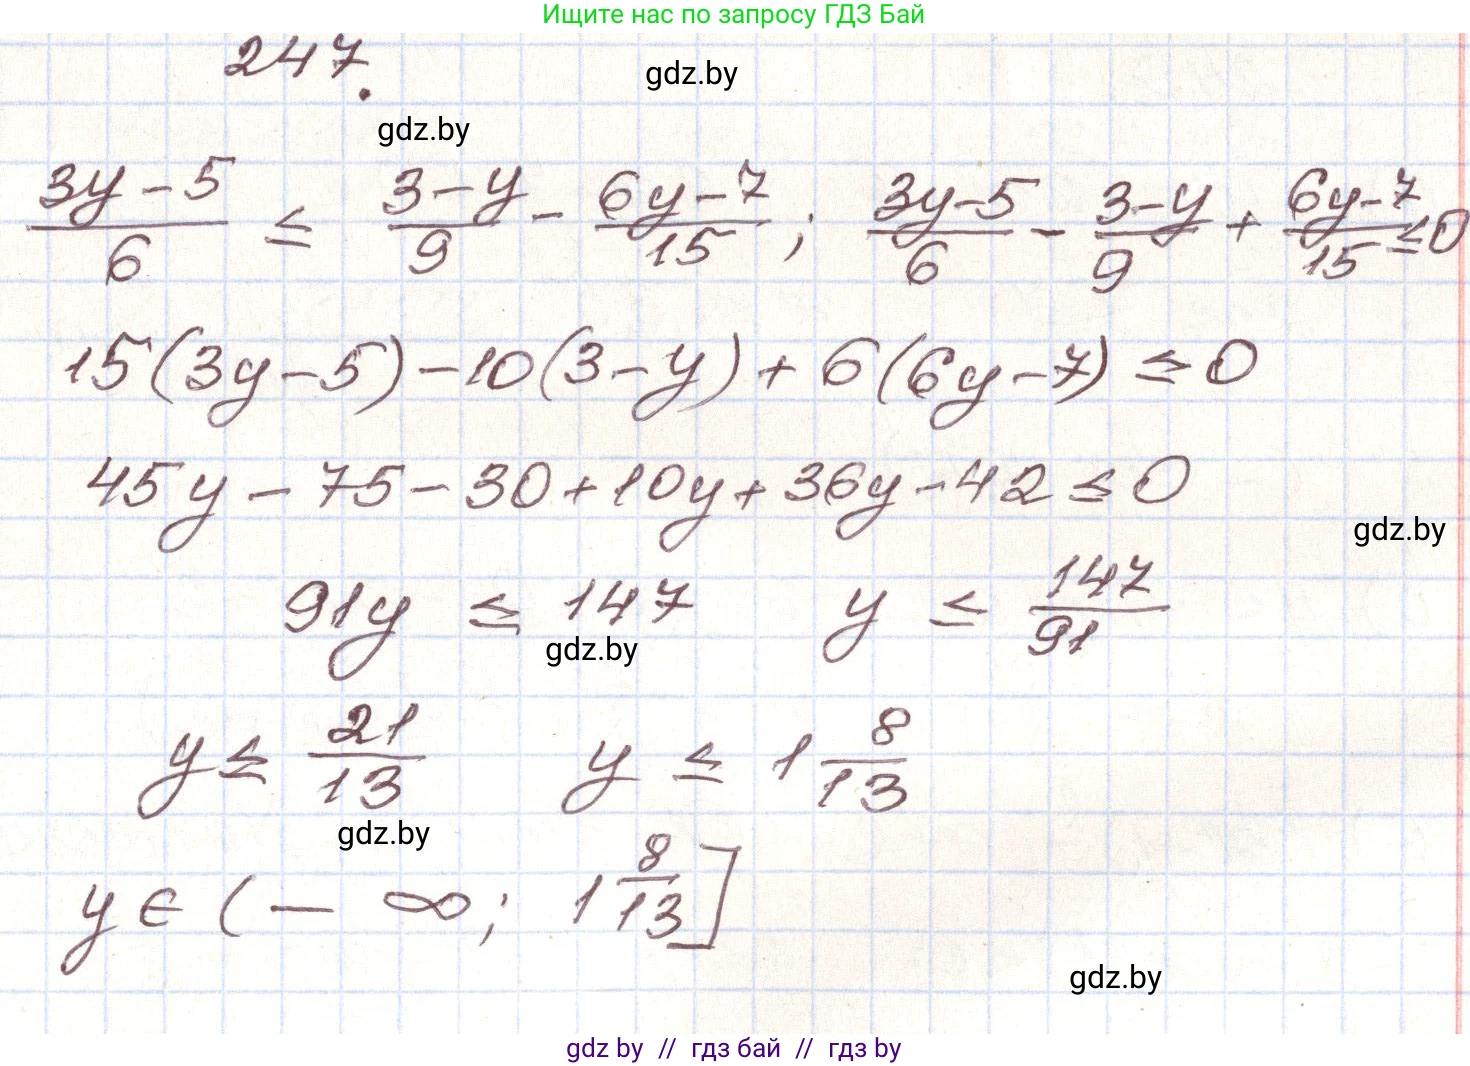 Ищите нас по запросу ГДЗ Бай
247.
gdz.by
gdz.by
(3y-5)/6 ≤ (3-y)/9 - (6y-7)/15 ; (3y-5)/6 - (3-y)/9 + (6y-7)/15 ≤ 0
15(3y-5)-10(3-y)+6(6y-7) ≤ 0
45y - 75 - 30 + 10y + 36y - 42 ≤ 0
gdz.by
91y ≤ 147 y ≤ 147/91
gdz.by
y ≤ 21/13 y ≤ 1 8/13
gdz.by
y ∈ (- ∞; 1 8/13]
gdz.by
gdz by // гдз бай // гдз by